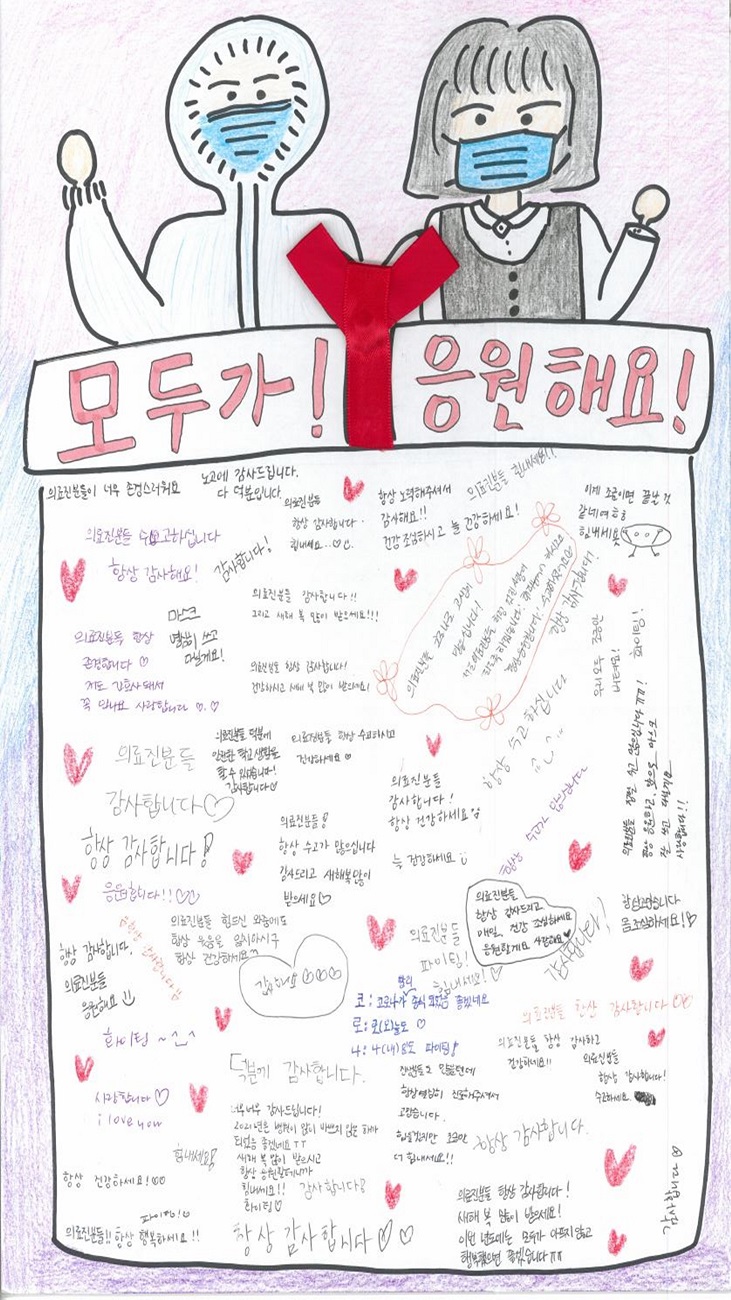 모두가! 응원해요!
의료진분들이 너무 존경스러워요
노고에 감사드립니다.
다 덕분입니다.
의료진분들
항상 감사합니다.
힘내세요...
항상 노력해주셔서
감사해요!!
건강 조심하시고 늘 건강하세요!
의료진분들 힘내세요!!
이제 조금이면 끝날 것
같네여ㅎㅎ
힘내세요
의료진분들 수고하십니다
항상 감사해요!
감사합니다!
의료진분들 감사합니다!!
그리고 새해 복 많이 받으세요!!!
마스크
열심히 쓰고
다닐게요!
의료진분들 항상
존경합니다 ♡
저도 간호사 돼서
꼭 만나요 사랑합니다
의료진분들 항상 감사합니다!
건강하시고 새해 복 많이 받으세요!
항상 감사합니다!
우리 모두 조금만
버텨봐요!
화이팅!
항상 수고 하십니다
의료진분들
감사합니다♡
의료진분들 덕분에
안전한 학교 생활을
할 수 있었습니다!
감사합니다♡
의료진분들 항상 수고하시고
건강하세요♡
의료진분들
감사합니다!
항상 건강하세요
항상 수고가 많으십니다
항상 감사합니다!
의료진분들!
항상 수고가 많으십니다
감사드리고 새해복많이
받으세요♡
늘 건강하세요
응원합니다!!♡♡
의료진분들
항상 감사드리고
매일, 건강 조심하세요
응원할게요 사랑해요♥
감사합니다!
몸조심하세요!♡
항상 감사합니다.
의료진분들
응원해요
의료진분들 힘드신 와중에도
항상 웃음을 잃지마시구
항상 건강하세요
의료진분들
파이팅!
힘내세요!♡
화이팅 ~^_^
코: 코로나가 빨리 종식 되었음 좋겠네요
로: 로(오)늘도 ♡
나: 나(내)일도 파이팅!
의료진분들 항상 감사합니다 ♡♡
의료진분들 항상 감사하고
건강하세요!!
의료진분들
항상 감사합니다!
수고하세요.
사랑합니다♡
i love you
덕분에 감사합니다.
항상 열심히 진료해주셔서
고맙습니다.
힘들겠지만 조금만
더 힘내세요!!
항상 감사합니다.
너무너무 감사드립니다!
2021년은 병원이 많이 바쁘지 않은 해가
되었음 좋겠네요 ㅜㅜ
새해 복 많이 받으시고
항상 응원할테니까
힘내세요!!
화이팅♡
감사합니다
힘내세요!
항상 건강하세요!♡♡
파이팅!♡
의료진분들!! 항상 행복하세요!!
항상 감사합니다♡ ♡
의료진분들 항상 감사합니다!
새해 복 많이 받으세요!
이번 년도에는 모두가 아프지 않고
행복했으면 좋겠습니다 ㅠㅠ